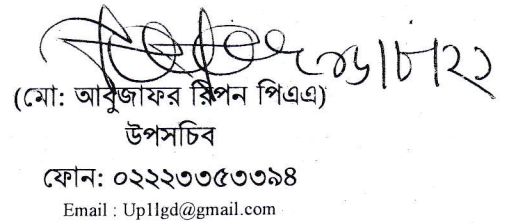 ০৮/৮/২১
(মো: আবুজাফর রিপন পিএএ)
উপসচিব
ফোন: ০২২২৩৩৫৩৩৯৪
Email : Up1lgd@gmail.com